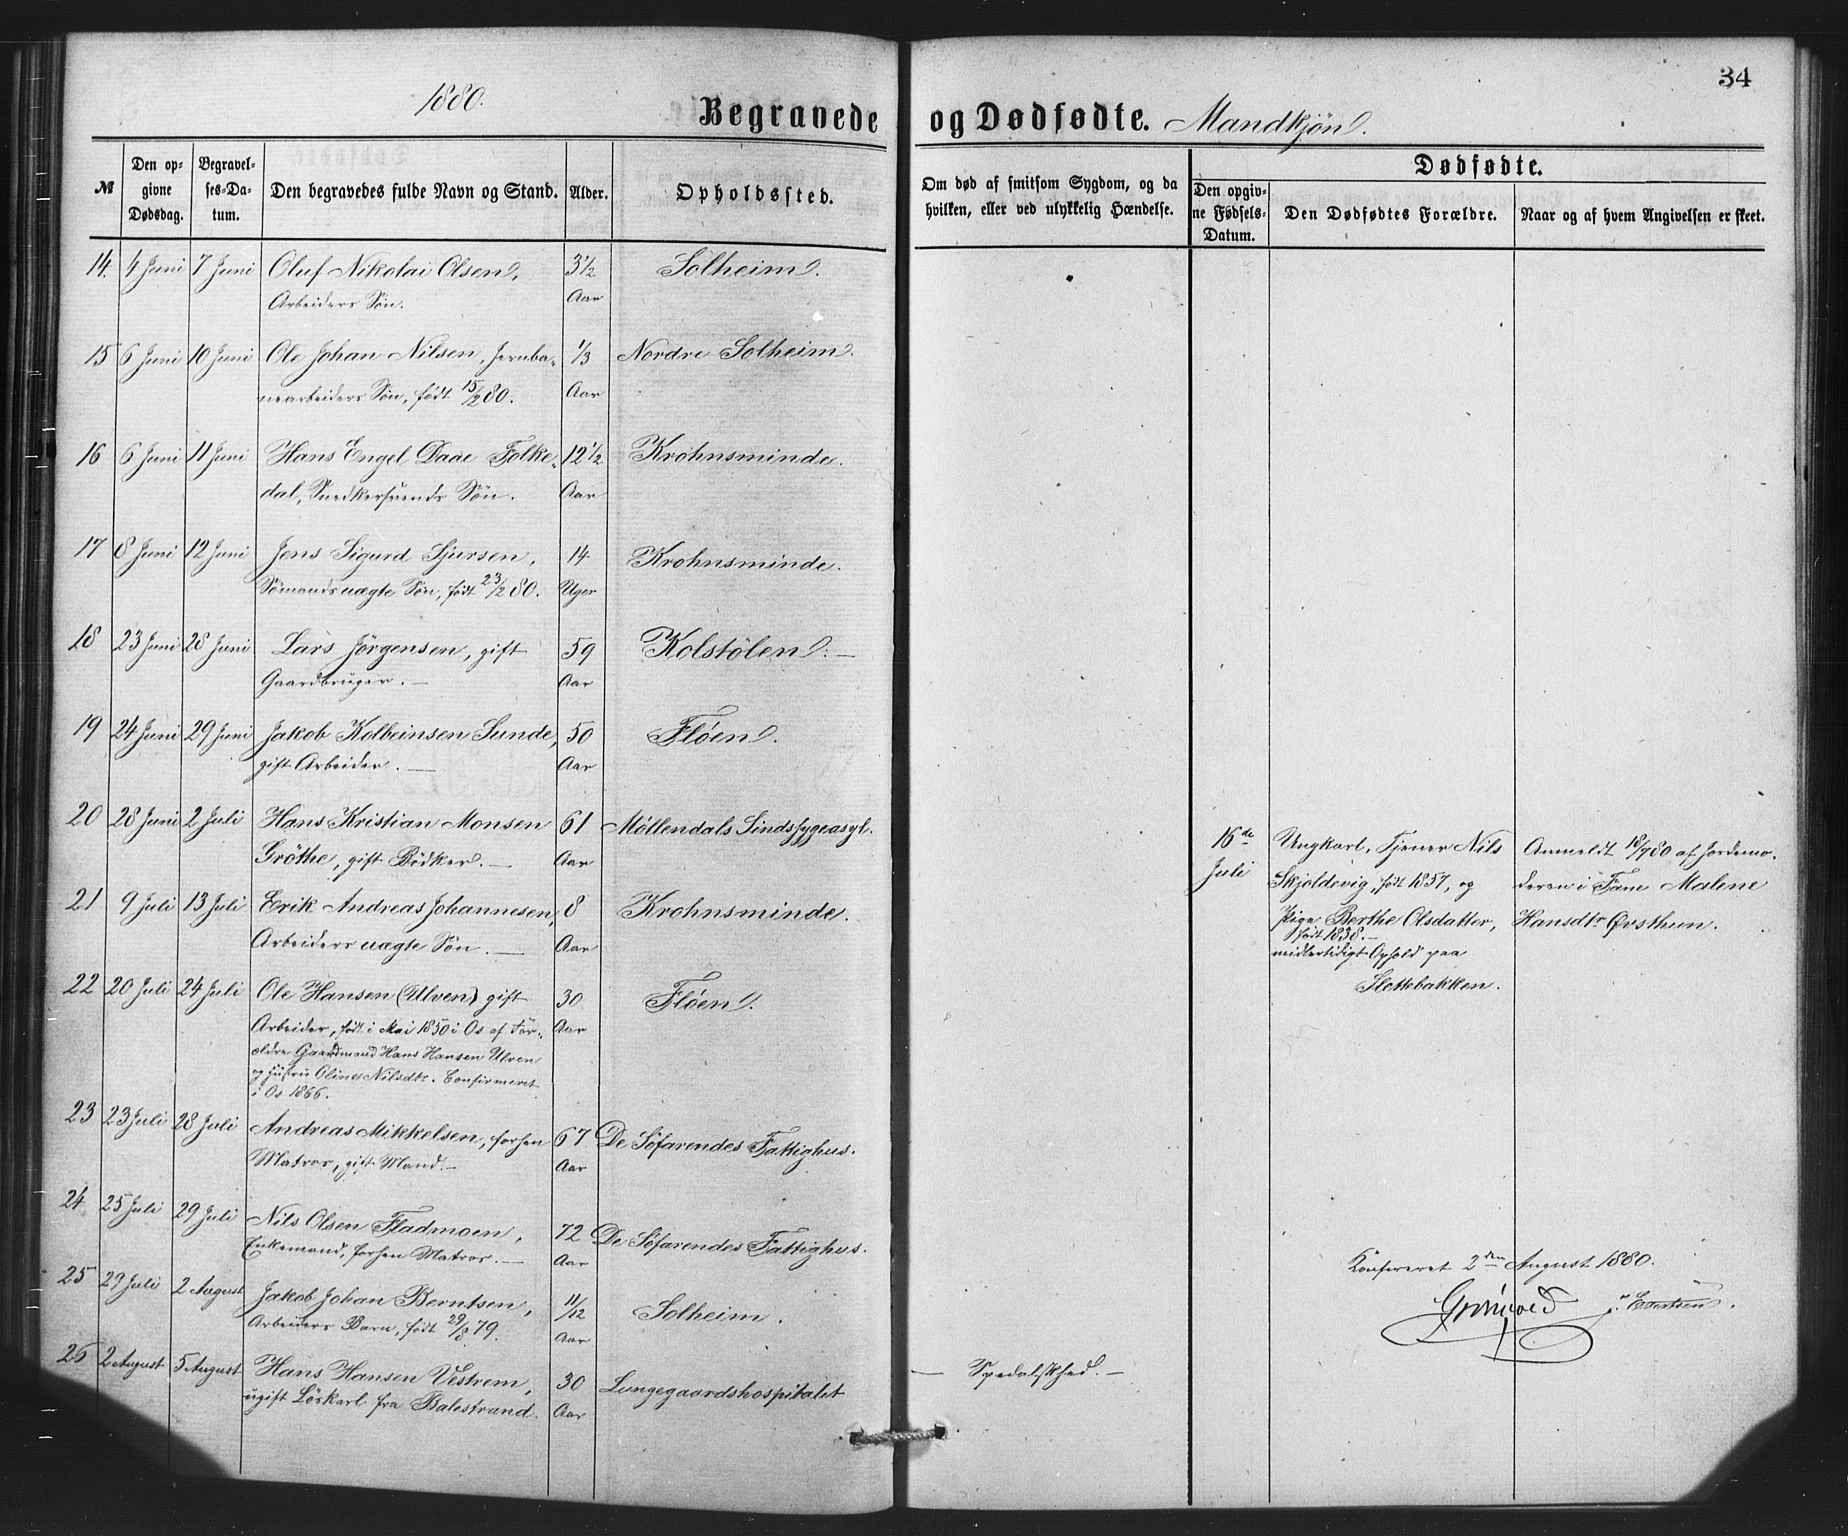 34
1880.
Begravede og Dødfødte. Mandkjøn.
№
Den opgivne Dødsdag.
Begravelses-Datum.
Den begravedes fulde Navn og Stand.
Alder.
Opholdssted.
Om død af smitsom Sygdom, og da hvilken, eller ved ulykkelig Hændelse.
Dødfødte.
Den opgivne Fødsels-Datum.
Den Dødfødtes Forældre.
Naar og af hvem Angivelsen er skeet.
14. 4 Juni 7 Juni Oluf Nikolai Olsen, 3 1/2 Solheim.
Arbeiders Søn. Aar
15 6 Juni 10 Juni Ole Johan Nilsen, Jernba- 1/3 Nordre Solheim.
nearbeiders Søn, født 15/2 80. Aar
16 6 Juni 11 Juni Hans Engel Daae Folke- 12 1/2 Krohnsminde.
dal, Snedkersvends Søn. Aar
17 8 Juni 12 Juni Jens Sigurd Sjursen, 14 Krohnsminde.
Sømands uægte Søn, født 23/2 80. Uger
18 23 Juni 28 Juni Lars Jørgensen, gift 59 Kolstølen. —
Gaardbruger. — Aar
19 24 Juni 29 Juni Jakob Kolbeinsen Sunde, 50 Fløen.
gift Arbeider. — Aar
20 28 Juni 2 Juli Hans Kristian Monsen 61 Møllendals Sindssygeasyl.
Grøthe, gift Bødker. — Aar
21 9 Juli 13 Juli Erik Andreas Johannesen, 8 Krohnsminde.
Arbeiders uægte Søn. — Aar
22 20 Juli 24 Juli Ole Hansen (Ulven) gift 30 Fløen.
Arbeider, født i Mai 1850 i Os af For- Aar
ældre Gaardmand Hans Hansen Ulven
og Hustru Oline Nilsdtr. Confirmeret
i Os 1866.
23 23 Juli 28 Juli Andreas Mikkelsen, forhen 67 De Søfarendes Fattighus.
Matros, gift Mand. — Aar
24 25 Juli 29 Juli Nils Olsen Fladmoen, 72 De Søfarendes Fattighus.
Enkemand, forhen Matros. — Aar
25 29 Juli 2 August Jakob Johan Berntsen, 11/12 Solheim.
Arbeiders Barn, født 29/8 79. Aar
26 2 August 5 August Hans Hansen Vestrem, 30 Lungegaardshospitalet
ugift Løskarl fra Balestrand. Aar
— Spedalskhed. —
16de Juli
Ungkarl, Tjener Nils
Skjoldevig, født 1857, og
Pige Berthe Olsdatter,
født 1838. —
midlertidigt Ophold paa
Slettebakken.
Anmeldt 18/7 80 af Jordemo-
deren i Fane Malene
Hansdtr Øvsthun.
Konfereret 2den August 1880.